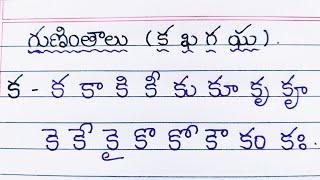 గుణింతాలు (క ఖ గ ఘ).
క - క కా కి కీ కు కూ కృ కౄ
కె కే కై కొ కో కౌ కం కః.